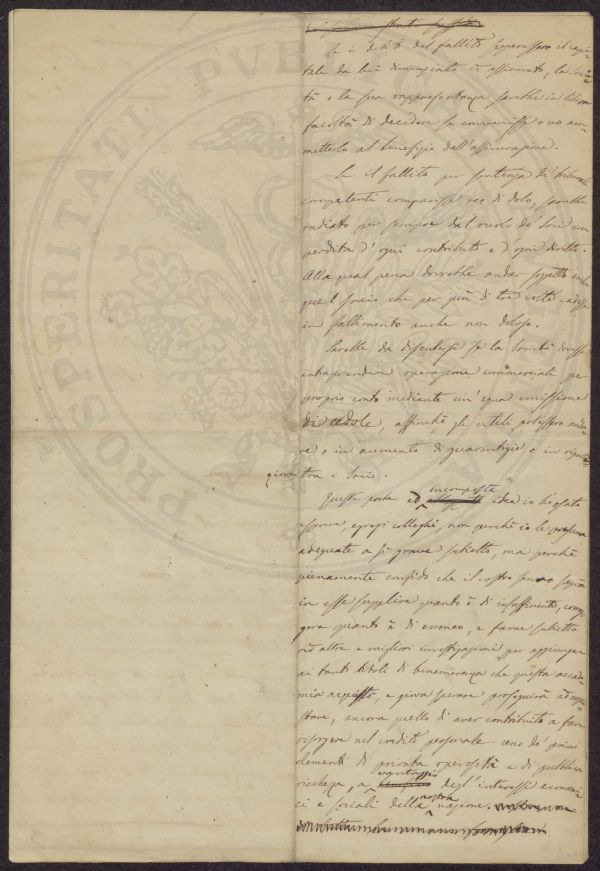 Se i debiti del fallito superassero il capi-
tale da lui denunziato ed assicurato, la socie-
tà o la sua rappresentanza sarebbe in libera
facoltà di decidere se convenisse o no am-
metterlo al benefizio dell'assicurazione.
Se il fallito per sentenza de' tribunali
competenti comparisse reo di dolo, sarebbe
radiato per sempre dal ruolo de' socii con
perdita d'ogni contributo e d'ogni diritto.
Alla qual pena dovrebbe andar soggetto anche
quel socio che per più di tre volte cadesse
in fallimento anche non doloso.
Sarebbe da discutersi se la società dovesse
intraprendere operazione commerciale per
proprio conto mediante un'equa emissione
di cedole, affinchè gli utili potessero anda-
re o in aumento di guarentigie o in ripar-
gione tra i socii.
Queste poche ed incomposte idee io ho osato
esporre, egregi colleghi, non perchè io le
adeguate a sì grave subietto, ma perchè
pienamente confido che il vostro senno saprà
in esse supplire quanto è di insufficiente, corre-
gere quanto è di erroneo, e farne subietto
ad altre e migliori investigazioni per aggiungere
ai tanti titoli di benemerenza che questa accade-
mia acquistò, e giova sperare proseguirà ad acqui-
stare, ancora quello di aver contribuito a fare
risorgere nel credito personale uno de' primi
elementi di privata operosità e di pubblica
ricchezza, a vantaggio degl'interessi economi-
ci e sociali della nostra nazione.
PROSPERITATI PUBL